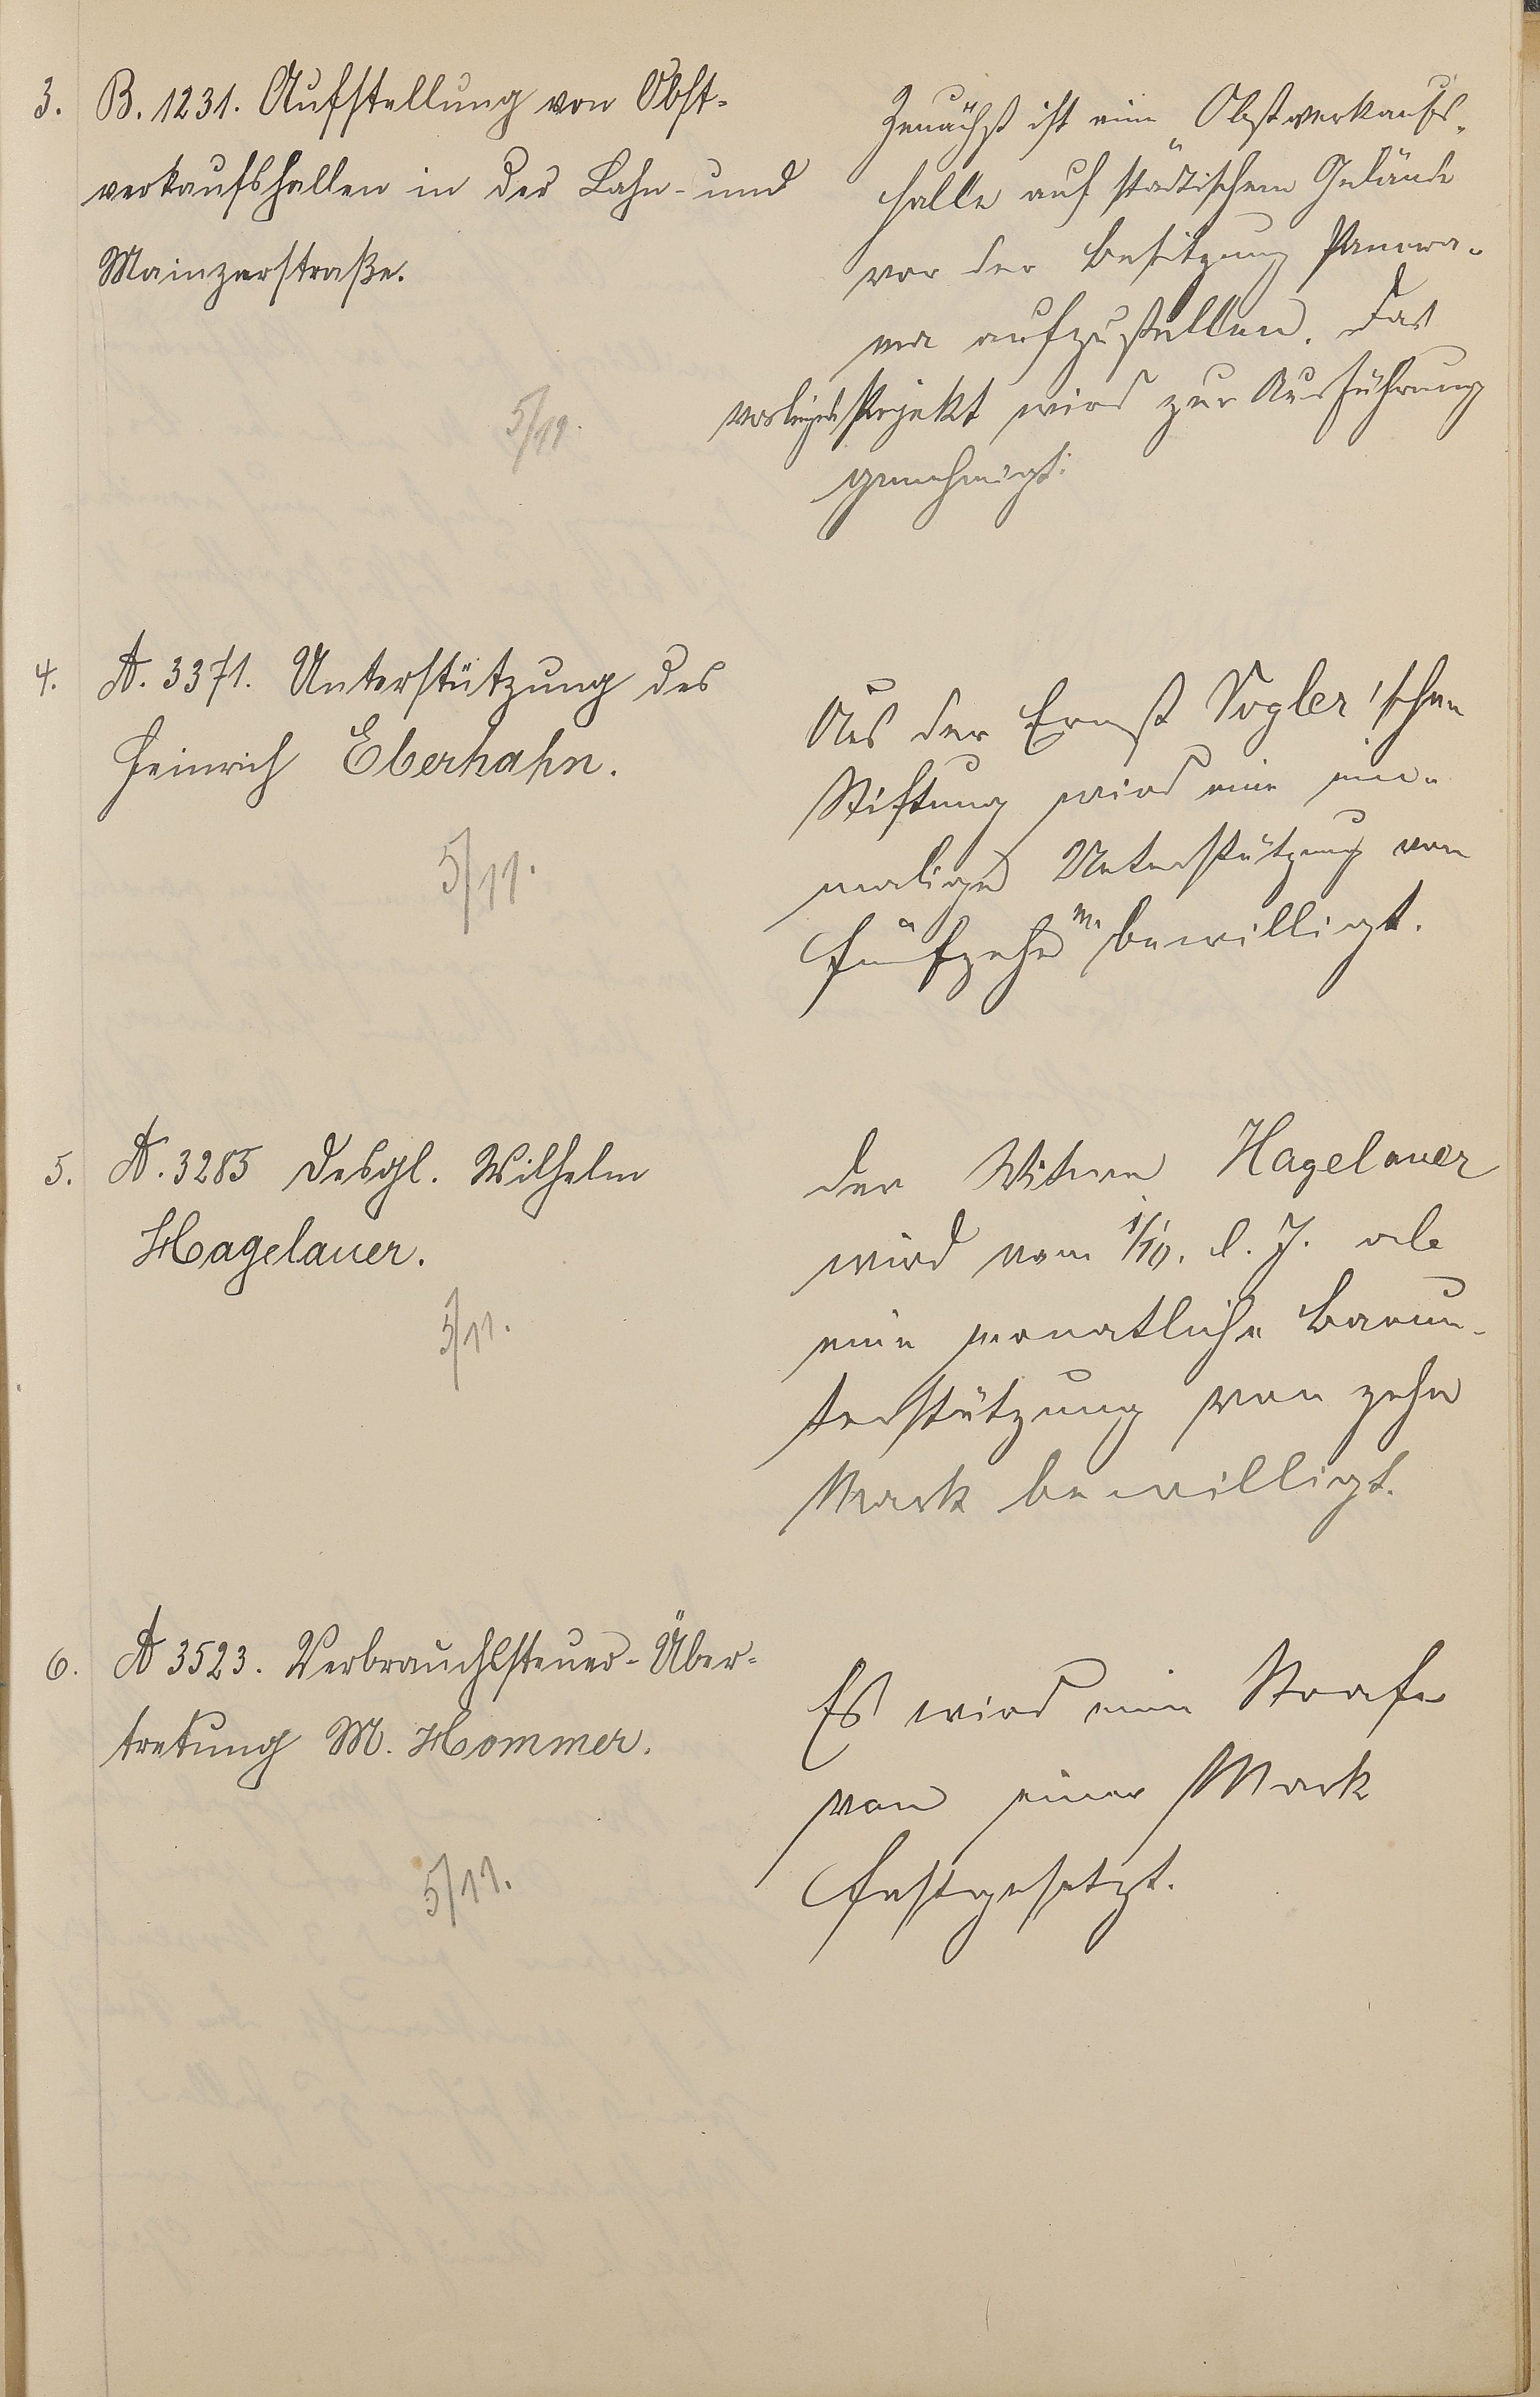 3. B. 1231. Aufstellung von Obst-
verkaufshallen in der Lahn- und
Mainzerstraße.
5/11.
Zunächst ist eine Obstverkaufs-
halle auf städtischem Gelände
vor der Besitzung
aufzustellen. Das
vorliegende Projekt wird zur Ausführung
genehmigt.
4. A. 3371. Unterstützung des
Heinrich Eberhahn.
5/11.
Aus der Ernst Vogler'schen
Stiftung wird eine ein-
malige Unterstützung von
fünfzehn M. bewilligt.
5. A. 3285 desgl. Wilhelm
Hagelauer.
5/11.
Der Witwe Hagelauer
wird vom 1/10. d. J. ab
eine monatliche Barun-
terstützung von zehn
Mark bewilligt.
6. A 3523. Verbrauchssteuer-Über-
tretung M. Hommer.
5/11.
Es wird eine Strafe
von einer Mark
festgesetzt.